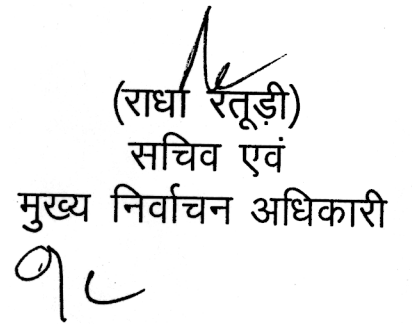 (राधा रतूड़ी)
सचिव एवं
मुख्य निर्वाचन अधिकारी